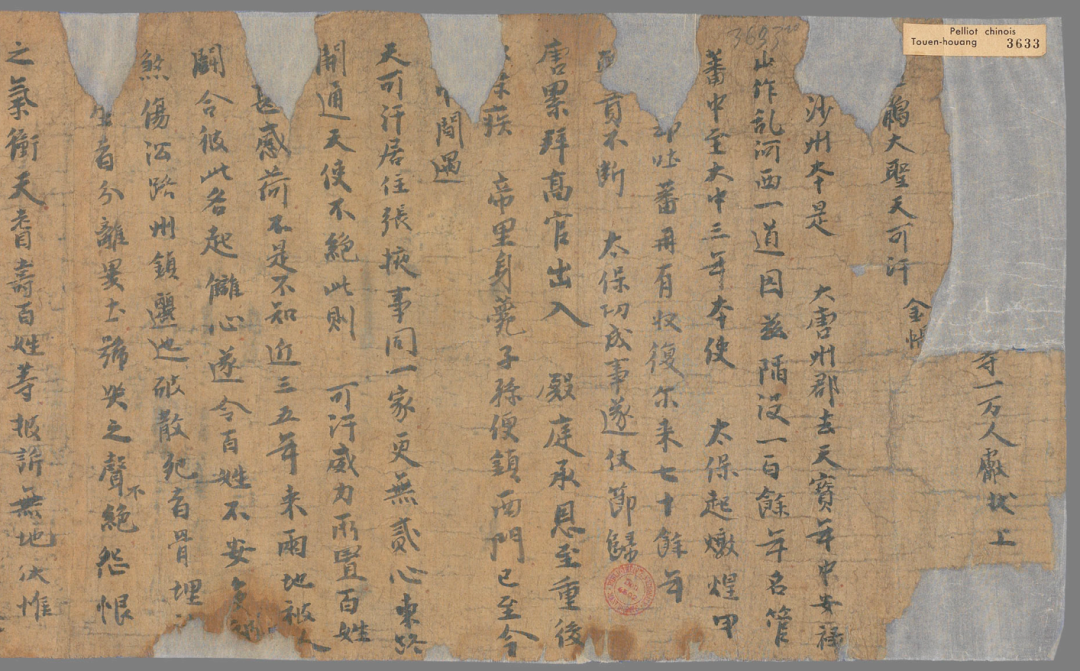 Pelliot chinois
Touen-houang 3633
等一万人獻狀上
鶻大聖天可汗 金
沙州本是 大唐州郡去天寶年中安祿
山作乱河西一道因兹陷没一百餘年名管
蕃中至大中三年本使 太保起燉煌甲
却吐蕃再有收復尔来七十餘年
貢不斷 太保功成事遂仗節歸
唐累拜高官出入 殿庭承恩至重後
疾 帝里身薨子孫便鎮西門已至今
中間遇
天可汗居住張掖事同一家更無貳心東路
開通天使不絶此則 可汗威力所置百姓
甚感荷不是不知近三五年来兩地被人
鬪合彼此各起讎心遂令百姓不安
煞傷沿路州鎮邐迤破散死者骨埋
生者分離異土號哭之聲不絶怨恨
之氣衝天耆壽百姓等披訴無地伏惟